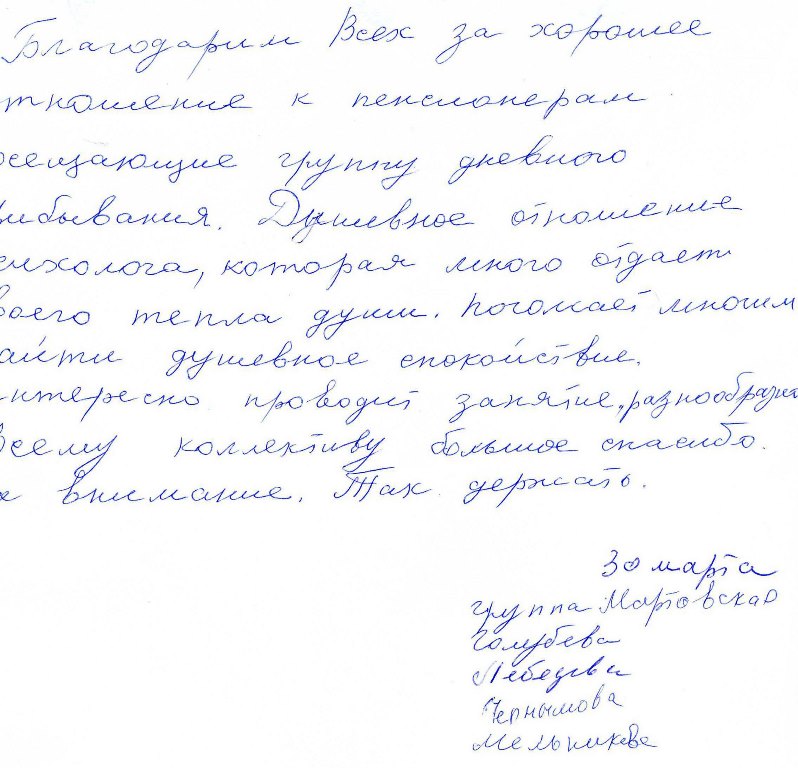 Благодарим Всех за хорошее
тношение к пенсионерам
осещающие группу дневного
рибывания. Душевное отношение
сихолога, которая много отдает
воего тепла души. Помогает многим
айти душевное спокойствие.
нтересно проводит занятие, разнообразно
Всему коллективу большое спасибо.
внимание. Так держать.
30 марта
группа Мартовская
Голубева
Лебедева
Мельникова